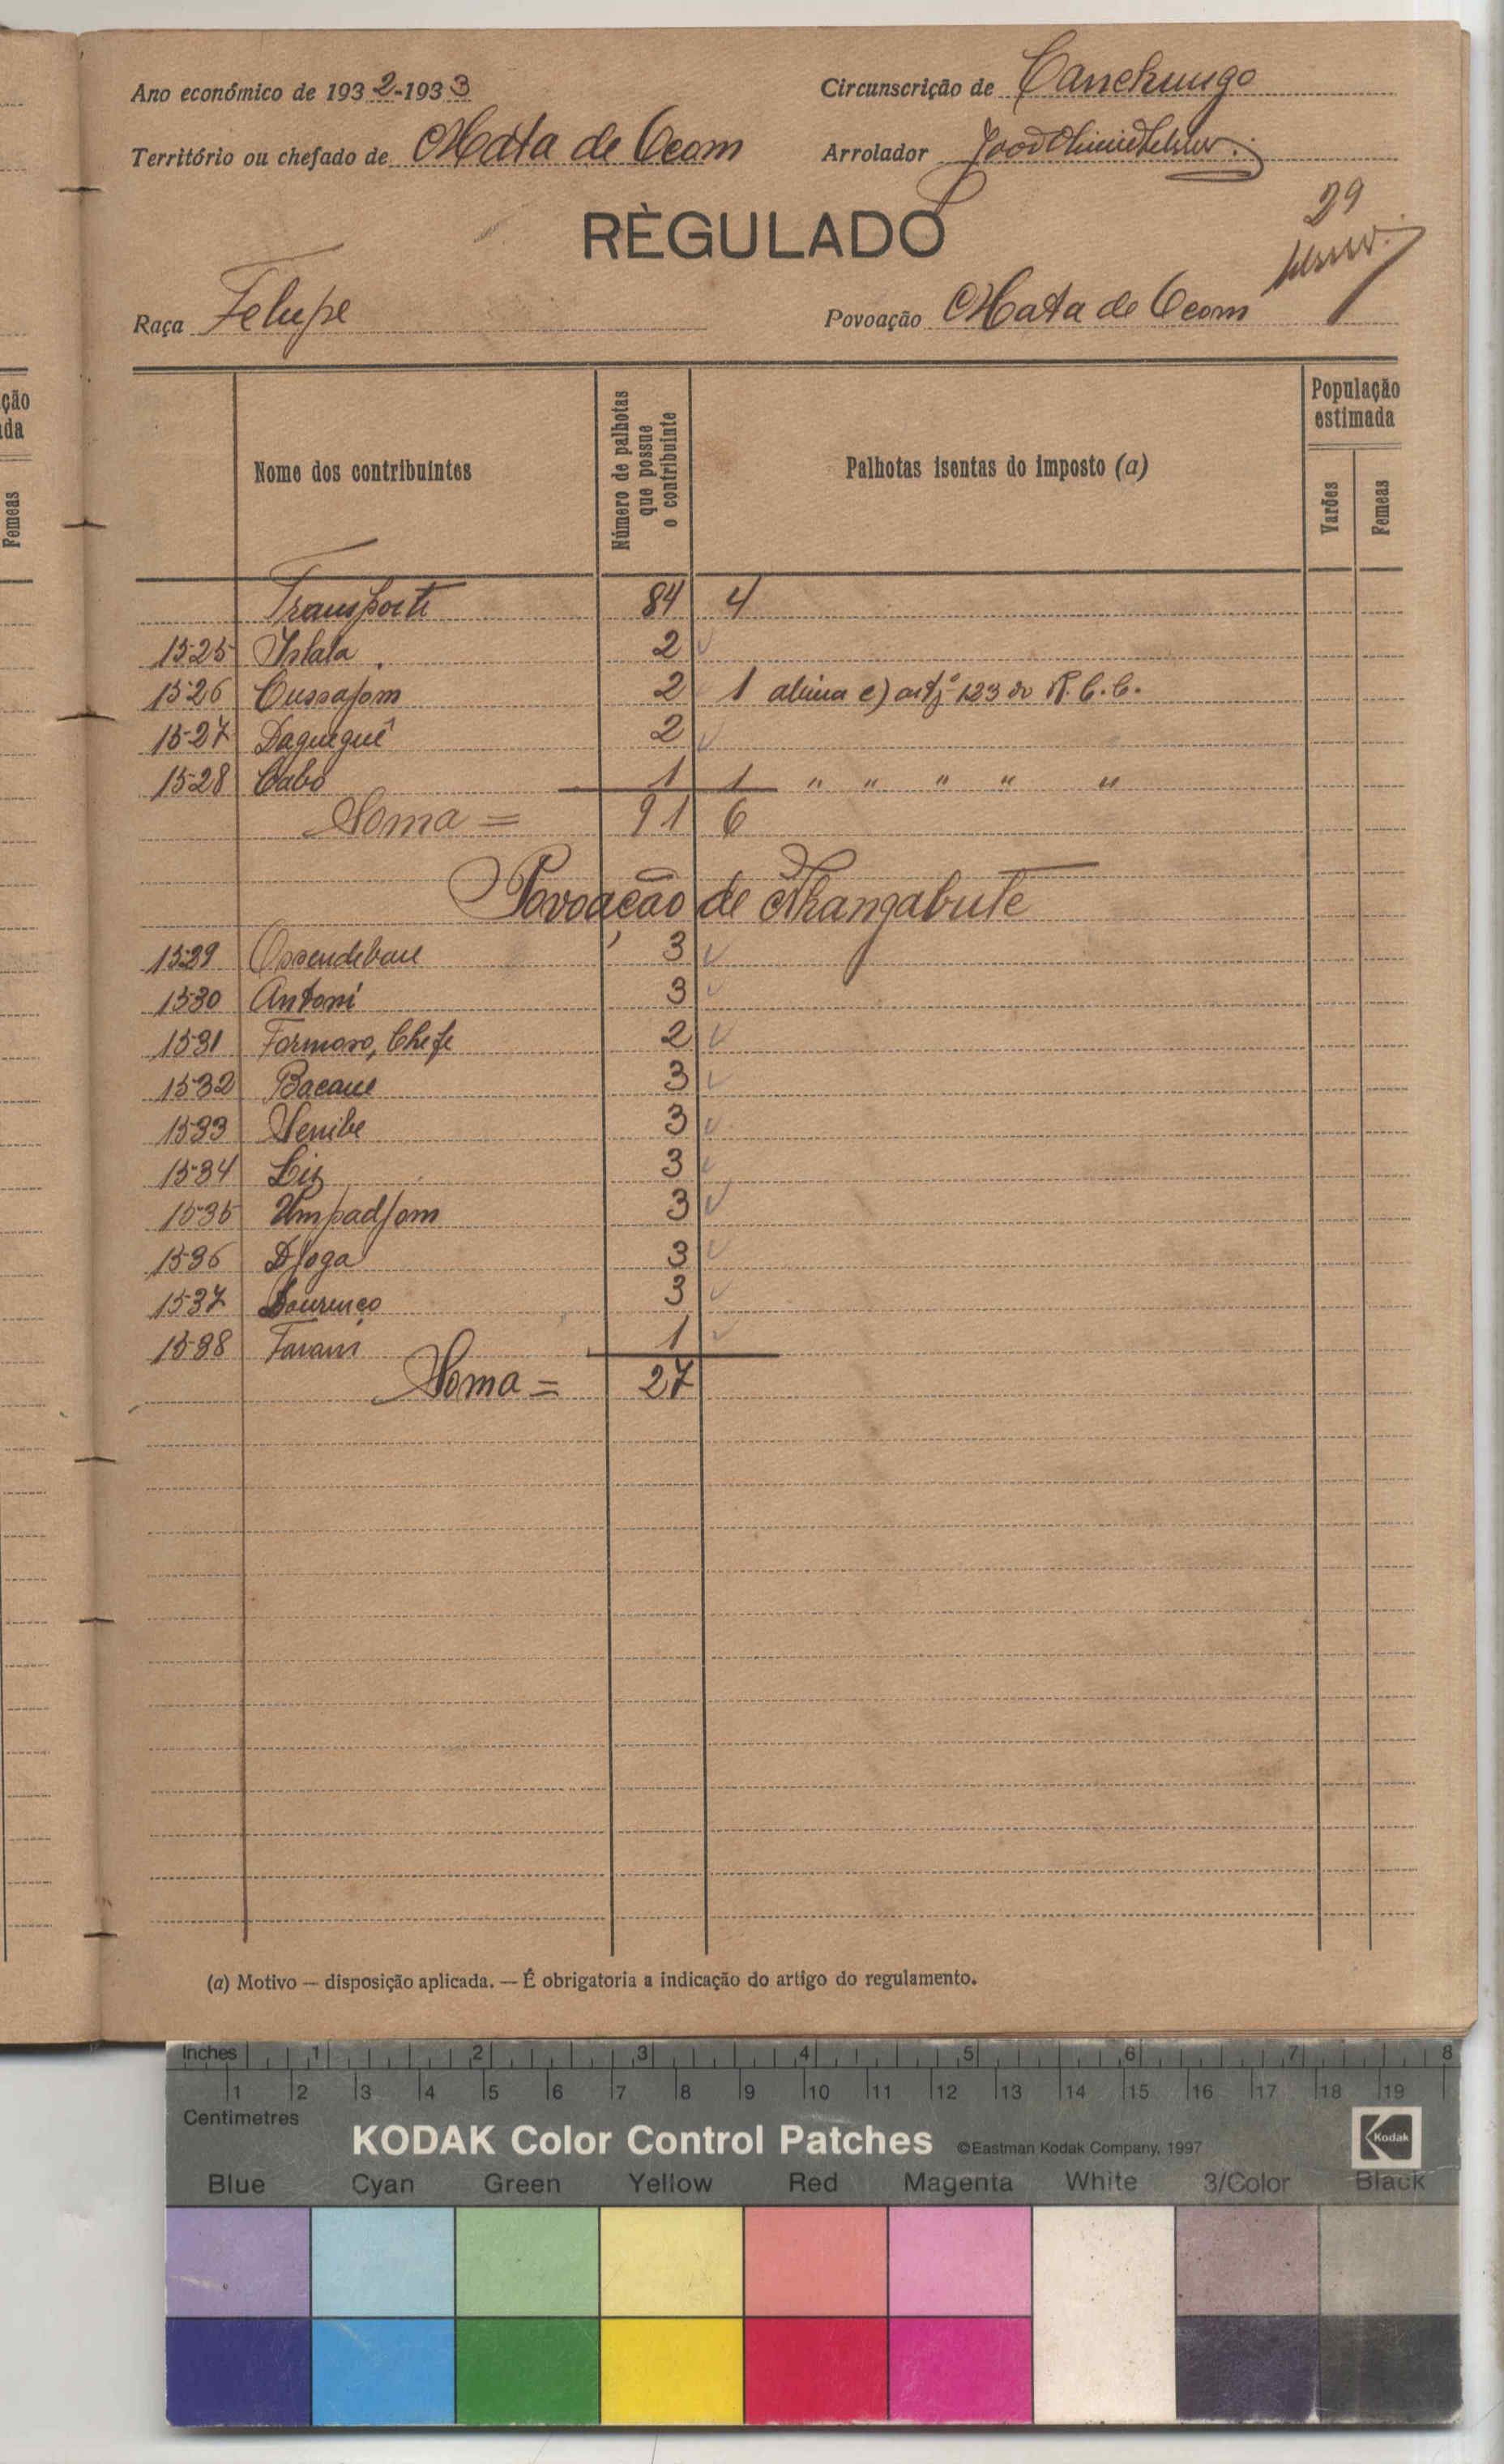 Ano económico de 1932-1933 Circunscrição de Canchungo
Território ou chefado de Mata de Ocom Arrolador João
29
RÈGULADO
Raça Felupe Povoação Mata de Ocom
Nome dos contribuintes
Número de palhotas que possue o contribuinte
Palhotas isentas do imposto (a)
População estimada
Varões
Femeas
Transporte 84 4
1525 Islata 2
1526 Cussajom 2 1 alinea e) artº 123 do R.C.C.
1527 Daguequê 2
1528 Cabo 1 1 " " " " "
Soma = 91 6
Povoação de Nhangabute
1529 3
1530 Antoni 3
1531 Formoso, Chefe 2
1532 Bacane 3
1533 3
1534 3
1535 Umpadjom 3
1536 Djoga 3
1537 Lourenço 3
1538 1
Soma = 27
(a) Motivo — disposição aplicada. — É obrigatoria a indicação do artigo do regulamento.
ção
da
Femeas
Inches 1 2 3 4 5 6 7 8
1 2 3 4 5 6 7 8 9 10 11 12 13 14 15 16 17 18 19
Centimetres
KODAK Color Control Patches ©Eastman Kodak Company, 1997 Kodak
Blue Cyan Green Yellow Red Magenta White 3/Color Black